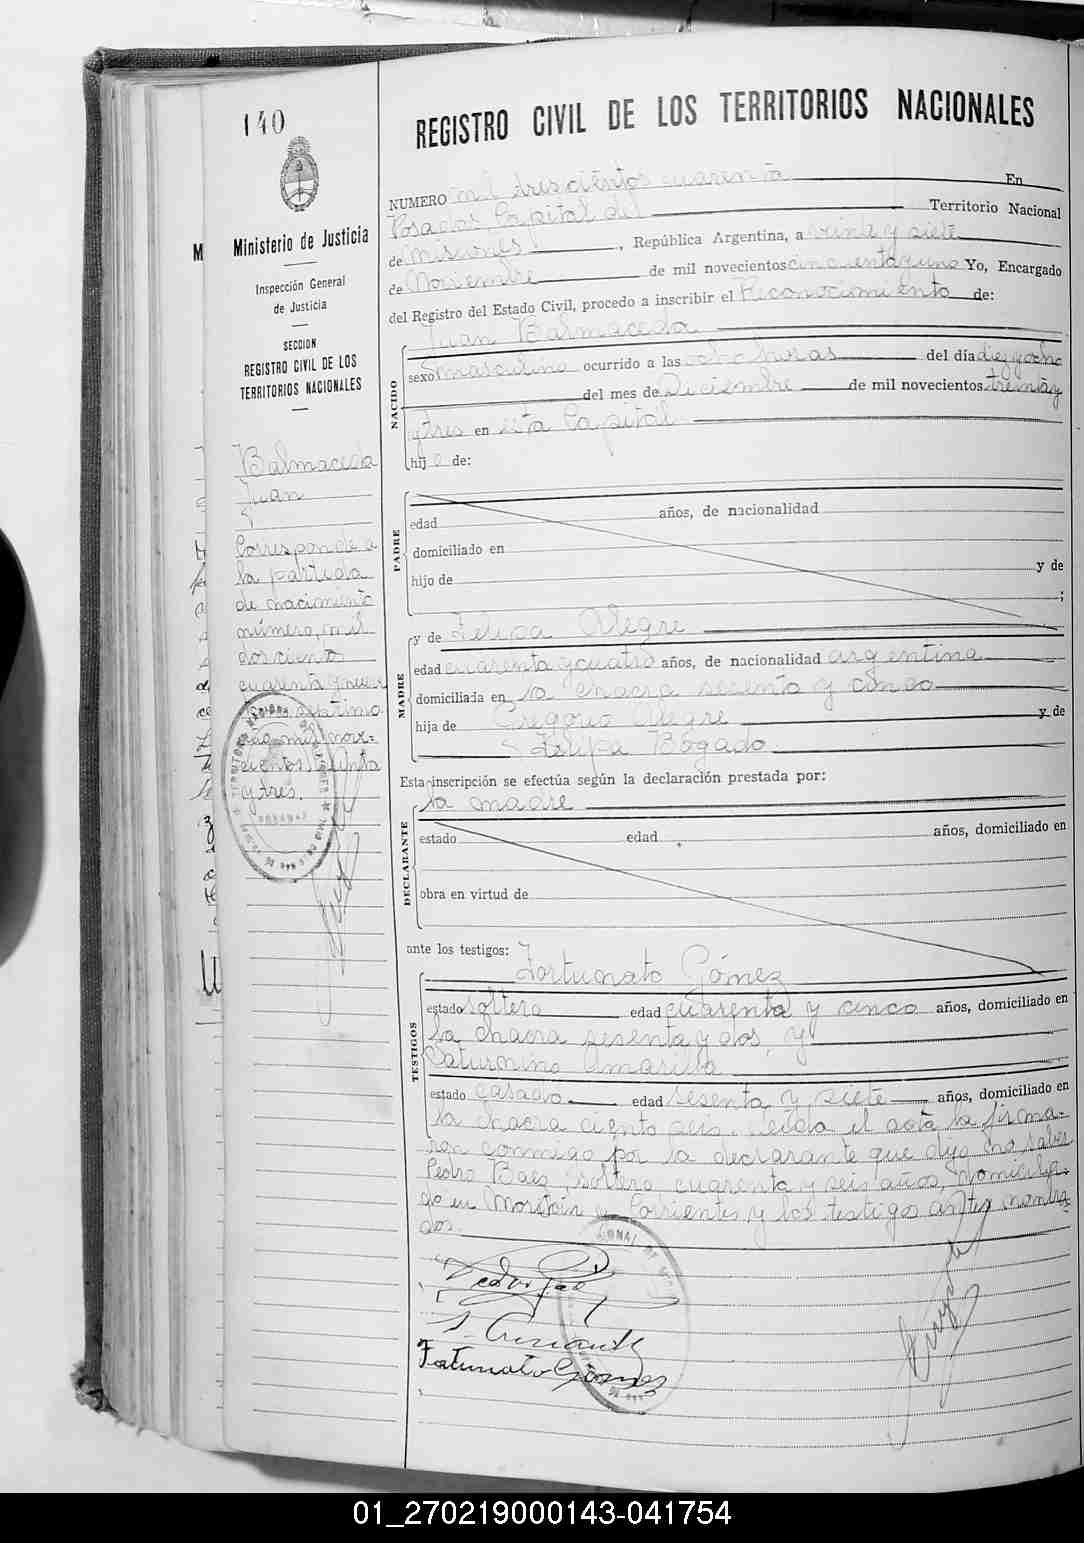 140
REGISTRO CIVIL DE LOS TERRITORIOS NACIONALES
Ministerio de Justicia
Inspección General
de Justicia
SECCION
REGISTRO CIVIL DE LOS
TERRITORIOS NACIONALES
Balmaceda
Juan
Corresponde a
la partida
de nacimiento
número, mil
doscientos
cuarenta y
septimo
mil nove-
cientos treinta
y tres.
NUMERO mil trescientos cuarenta En
Posadas, Capital del Territorio Nacional
de Misiones, República Argentina, a veinte y siete
de Noviembre de mil novecientos cincuenta y uno Yo, Encargado
del Registro del Estado Civil, procedo a inscribir el Reconocimiento de:
Juan Balmaceda
NACIDO
sexo masculino ocurrido a las ocho horas del día diez y ocho
del mes de Diciembre de mil novecientos treinta y
tres en esta Capital
hijo de:
PADRE
edad años, de nacionalidad
domiciliado en
hijo de y de
;
MADRE
y de Felipa Alegre
edad cuarenta y cuatro años, de nacionalidad argentina
domiciliada en la chacra sesenta y cinco
hija de Gregorio Alegre y de
Felipa Bogado
Esta inscripción se efectúa según la declaración prestada por:
la madre
DECLARANTE
estado edad años, domiciliado en
obra en virtud de
ante los testigos:
Fortunato Gómez
TESTIGOS
estado soltero edad cuarenta y cinco años, domiciliado en
la chacra sesenta y dos, y
Saturnino Amarilla
estado casado edad sesenta y siete años, domiciliado en
la chacra ciento seis. Leída el acta la firma-
ron conmigo por la declarante que dijo no saber
Pedro Baez, soltero, cuarenta y seis años, domicilia-
do en Corrientes, y los testigos antes nombra-
dos.
Fortunato Gómez
01_270219000143-041754